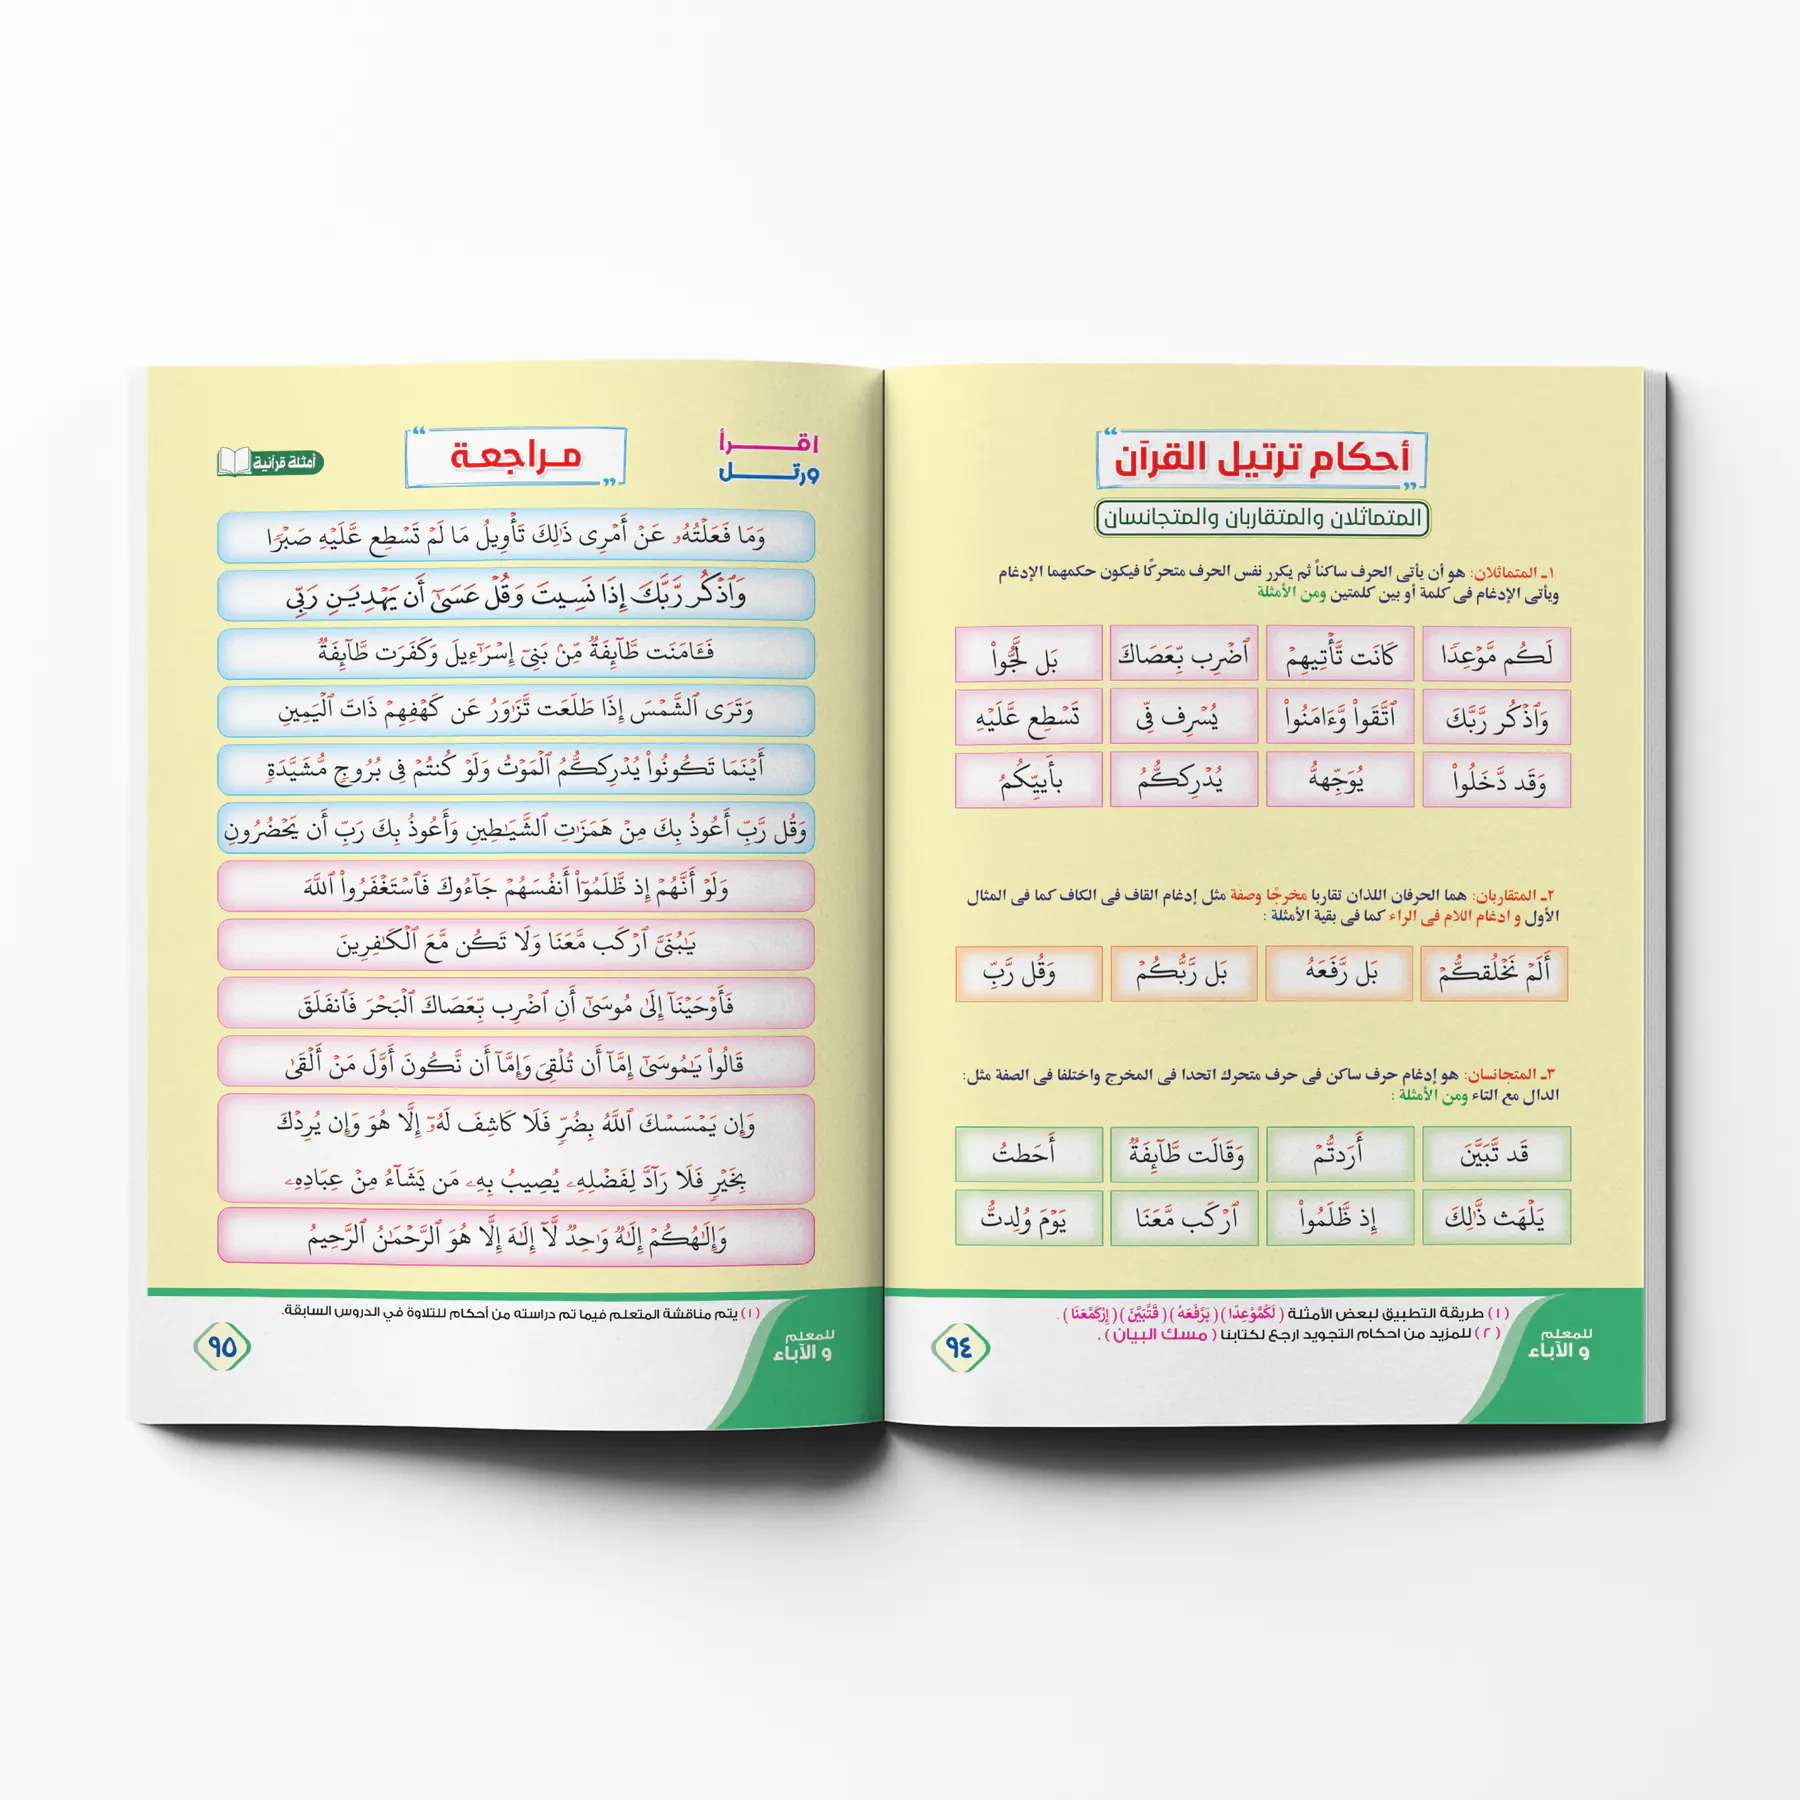 أحكام ترتيل القرآن
المتماثلان والمتقاربان والمتجانسان
١ـ المتماثلان: هو أن يأتى الحرف ساكناً ثم يكرر نفس الحرف متحركًا فيكون حكمهما الإدغام
ويأتى الإدغام فى كلمة أو بين كلمتين ومن الأمثلة
لَكُم مَّوْعِدًا كَانَت تَّأْتِيهِمْ ٱضْرِب بِّعَصَاكَ بَل لَّجُّوا۟
وَٱذْكُر رَّبَّكَ ٱتَّقَوا۟ وَّءَامَنُوا۟ يُسْرِف فِّى تَسْطِع عَّلَيْهِ
وَقَد دَّخَلُوا۟ يُوَجِّههُّ يُدْرِككُّمُ بِأَييِّكُمُ
٢ـ المتقاربان: هما الحرفان اللذان تقاربا مخرجًا وصفة مثل إدغام القاف فى الكاف كما فى المثال
الأول و ادغام اللام فى الراء كما فى بقية الأمثلة :
أَلَمْ نَخْلُقكُّمْ بَل رَّفَعَهُ بَل رَّبُّكُمْ وَقُل رَّبِّ
٣ـ المتجانسان: هو إدغام حرف ساكن فى حرف متحرك اتحدا فى المخرج واختلفا فى الصفة مثل:
الدال مع التاء ومن الأمثلة :
قَد تَّبَيَّنَ أَرَدتُّمْ وَقَالَت طَّآئِفَةٌ أَحَطتُ
يَلْهَث ذَّٰلِكَ إِذ ظَّلَمُوا۟ ٱرْكَب مَّعَنَا يَوْمَ وُلِدتُّ
(١) طريقة التطبيق لبعض الأمثلة (لَكُمَّوْعِدًا) (بَرَّفَعَهُ) (قَتَّبَيَّنَ) (اِرْكَمَّعَنَا).
(٢) للمزيد من احكام التجويد ارجع لكتابنا (مسك البيان).
للمعلم
و الآباء
٩٤
اقـــرأ
ورتـــل
مـراجعـة
أمثلة قرآنية
وَمَا فَعَلْتُهُۥ عَنْ أَمْرِى ذَٰلِكَ تَأْوِيلُ مَا لَمْ تَسْطِع عَّلَيْهِ صَبْرًا
وَٱذْكُر رَّبَّكَ إِذَا نَسِيتَ وَقُلْ عَسَىٰٓ أَن يَهْدِيَنِ رَبِّى
فَـَٔامَنَت طَّآئِفَةٌ مِّنۢ بَنِىٓ إِسْرَٰٓءِيلَ وَكَفَرَت طَّآئِفَةٌ
وَتَرَى ٱلشَّمْسَ إِذَا طَلَعَت تَّزَٰوَرُ عَن كَهْفِهِمْ ذَاتَ ٱلْيَمِينِ
أَيْنَمَا تَكُونُوا۟ يُدْرِككُّمُ ٱلْمَوْتُ وَلَوْ كُنتُمْ فِى بُرُوجٍ مُّشَيَّدَةٍ
وَقُل رَّبِّ أَعُوذُ بِكَ مِنْ هَمَزَٰتِ ٱلشَّيَـٰطِينِ وَأَعُوذُ بِكَ رَبِّ أَن يَحْضُرُونِ
وَلَوْ أَنَّهُمْ إِذ ظَّلَمُوٓا۟ أَنفُسَهُمْ جَآءُوكَ فَٱسْتَغْفَرُوا۟ ٱللَّهَ
يَـٰبُنَىَّ ٱرْكَب مَّعَنَا وَلَا تَكُن مَّعَ ٱلْكَـٰفِرِينَ
فَأَوْحَيْنَآ إِلَىٰ مُوسَىٰٓ أَنِ ٱضْرِب بِّعَصَاكَ ٱلْبَحْرَ فَٱنفَلَقَ
قَالُوا۟ يَـٰمُوسَىٰٓ إِمَّآ أَن تُلْقِىَ وَإِمَّآ أَن نَّكُونَ أَوَّلَ مَنْ أَلْقَىٰ
وَإِن يَمْسَسْكَ ٱللَّهُ بِضُرٍّ فَلَا كَاشِفَ لَهُۥٓ إِلَّا هُوَ وَإِن يُرِدْكَ
بِخَيْرٍ فَلَا رَآدَّ لِفَضْلِهِۦ يُصِيبُ بِهِۦ مَن يَشَآءُ مِنْ عِبَادِهِۦ
وَإِلَـٰهُكُمْ إِلَـٰهٌ وَٰحِدٌ لَّآ إِلَـٰهَ إِلَّا هُوَ ٱلرَّحْمَـٰنُ ٱلرَّحِيمُ
(١) يتم مناقشة المتعلم فيما تم دراسته من أحكام للتلاوة في الدروس السابقة.
للمعلم
و الآباء
٩٥